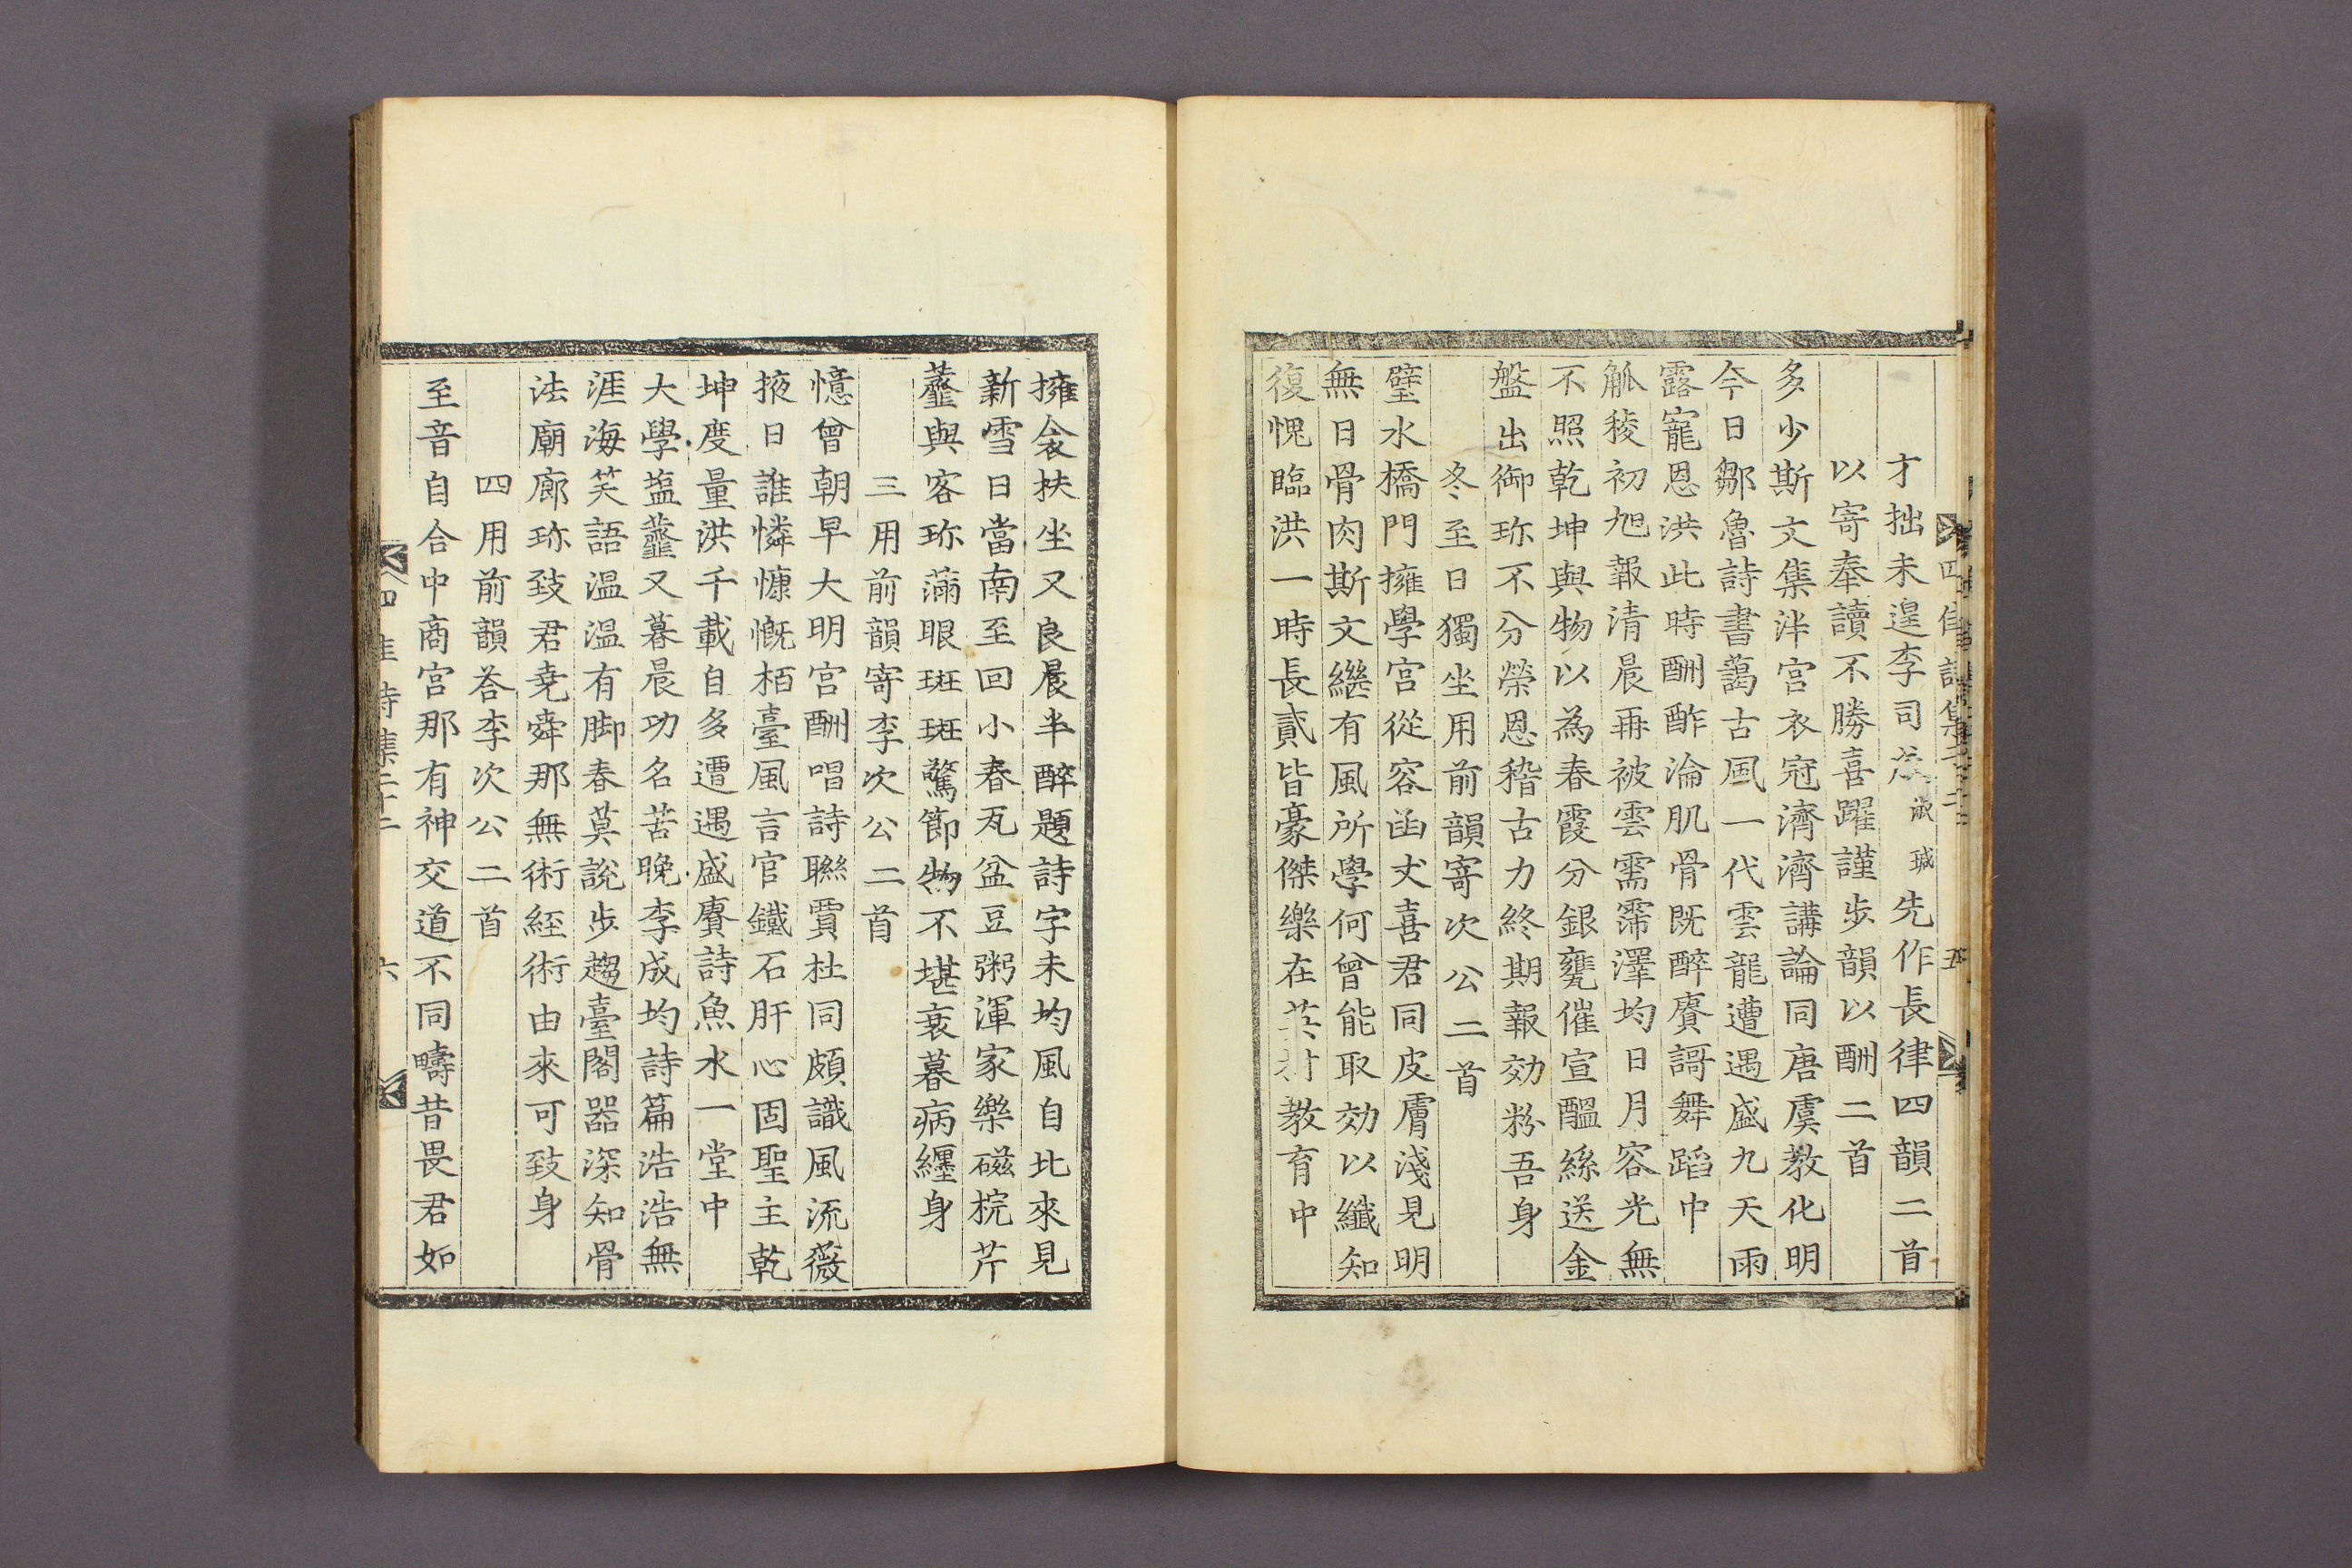 才拙未遑李司淑瑊先作長律四韻二首
以寄奉讀不勝喜躍謹步韻以酬二首
多少斯文集泮宮衣冠濟濟講論同唐虞教化明
今日鄒魯詩書藹古風一代雲龍遭遇盛九天雨
露寵恩洪此時酬酢淪肌骨旣醉賡謌舞蹈中
觚稜初旭報清晨再被雲需霈澤均日月容光無
不照乾坤與物以為春霞分銀甕催宣醞絲送金
盤出御珎不分榮恩稽古力終期報効粉吾身
冬至日獨坐用前韻寄次公二首
璧水橋門擁學宮從容函丈喜君同皮膚淺見明
無日骨肉斯文繼有風所學何曾能取効以纖知
復愧臨洪一時長貳皆豪傑樂在英材教育中
擁衾扶坐又良晨半醉題詩字未均風自北來見
新雪日當南至回小春瓦盆豆粥渾家樂磁椀芹
虀與客珎滿眼斑斑驚節物不堪衰暮病纏身
三用前韻寄李次公二首
憶曾朝早大明宮酬唱詩聯賈杜同頗識風流薇
掖日誰憐慷慨栢臺風言官鐵石肝心固聖主乾
坤度量洪千載自多遭遇盛賡詩魚水一堂中
大學塩虀又暮晨功名苦晚李成均詩篇浩浩無
涯海笑語温温有脚春莫說步趨臺閣器深知骨
法廟廊珎致君堯舜那無術經術由來可致身
四用前韻答李次公二首
至音自合中商宮那有神交道不同疇昔畏君如
四佳詩集二十二
六